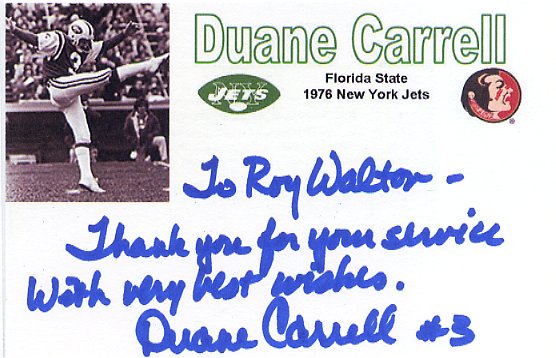 Duane Carrell
Florida State
1976 New York Jets
NY
JETS
3
To Roy Walton -
Thank you for your service
With very best wishes.
Duane Carrell #3